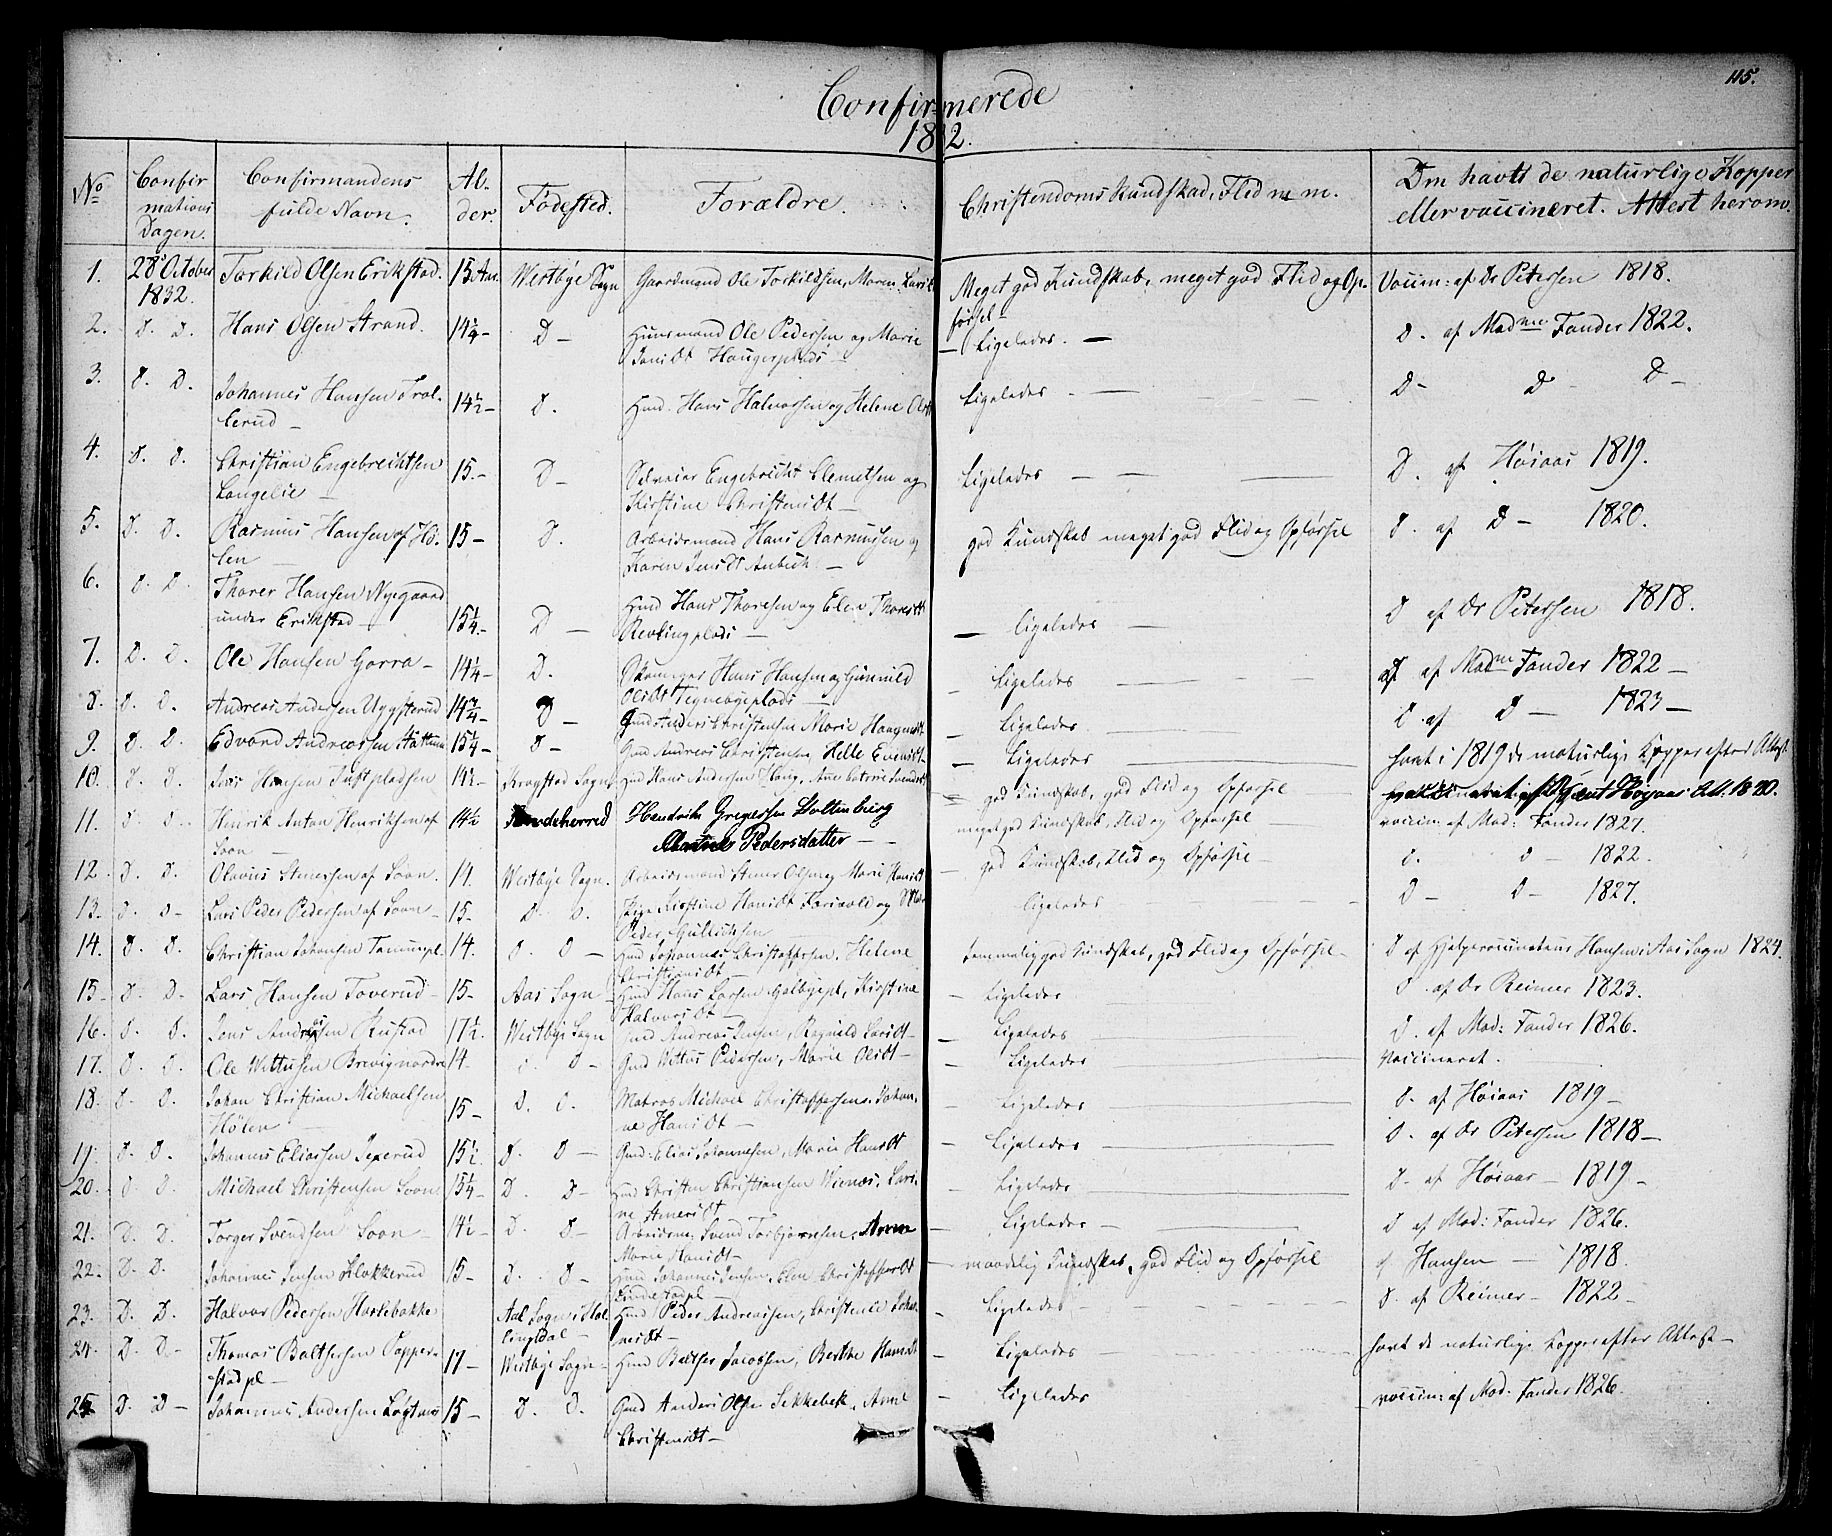 115.
Confirmerede
1832.
No
Confir
mations
Dagen.
Confirmandens
fulde Navn.
Al-
der.
Fødested.
Forældre.
Christendoms Kundskab, Flid m m.
Om havts de naturlige Kopper
eller vaccineret. Attest herom.
1. 28 October 1832. Torkild Olsen Erikstad. 15 Aar. Westbye Sogn Gaardmand Ole Torkildsen, Maren Larsdt Meget god Kundskab, meget god Flid og Op-
førsel- Vaccin: af Dr Petersen 1818.
2. D. D. Hans Olsen Strand. 14¼- D- Huusmand Ole Pedersen og Marie
Hougerplads - - Ligeledes. - D. af Madme Fander 1822.
3. D. D. Johannes Hansen Trol-
lerud - 14½- D. Huusd. Hans Halvorsen og Helene Olsdt Ligeledes - D- D- D-
4. D. D. Christian Engebrechtsen
Langelie - 15.- D- Selveier Engebrecht Clemetsen og
Kirstine Christensdt - Ligeledes - D. af Høiaas 1819.
5. D. D. Rasmus Hansen af Hø-
len - 15- D. Arbeidsmand Hans Rasmussen og
Karen Jensdt - god Kundskab meget god Flid og Opførsel D. af D- 1820.
6. D. D. Thorer Hansen Nyegaard
under Erikstad 15¼- D- Huusd Hans Thoresen og Elen Thoresdt
- - ligeledes - D af Dr Petersen 1818.
7. D. D. Ole Hansen Garra- 14¼- D. Hans Hansen og Gunnild
Olsdt Tegnebyeplads - - Ligeledes D af Madme Fander 1822-
8. D. D. Andreas Andersen Uggsterud 14¾- D- Gmd Anders Christensen Marie - Ligeledes D. af D- 1823-
9. D. D. Edvard Andreassen 15¼- D- Gmd Andreas Christensen Helle Evensdt- - Ligeledes havt i 1819 de naturlige Kopper efter Attest
10. D. D. Jens Hansen 14½- Kragstad Sogn Hmd Hans Andersen - god Kundskab, god Flid og Opførsel
11. D. D. Henrik Anton Henriksen af
Soon - 14½ Hendrik Gregersen Holtenberg
Pedersdatter - meget god Kundskab, Flid og Opførsel vaccin: af Mad: Fander 1827.
12. D. D. Olavus Stenersen af Soon. 14. Westbye Sogn. Arbeidsmand Stener Olsen og Marie Hansdt - god Kundskab, Flid og Opførsel- D. D- 1822.
13. D. D- Lars Peder Pedersen af Soon- 15- D. D. Pige Kirstine Hansdt og
Peder Gullichsen ligeledes D- D- 1827.
14. D. D. Christian Johansen 14. D. D- Hmd Johannes Christophersen, Helene
Christiansdt - temmelig god Kundskab, god Flid og Opførsel- D af Hjelpevaccinateur Hansen i Aas Sogn 1824.
15- D. D. Lars Hansen Toverud- 15- Aas Sogn - Hmd Hans Larsen Kirstine
Halvorsdt - - Ligeledes D. af Dr Reimer 1823.
16. D. D. Jens Andersen Rustad 17½. Westbye Sogn Gmd Andreas Jensen, Ragnild Larsdt- - Ligeledes D. af Mad: Fander 1826.
17. D. D. Ole Wittusen Brevignordre 14. D- Gmd Wittus Pedersen, Marie Olsdt- - Ligeledes Vaccineret.
18. D. D. Johan Christian Michaelsen
Hølen - 15- D. D. Matros Michael Christophersen, Johan-
ne Hansdt - - Ligeledes D. af Høiaas 1819-
19. D. D. Johannes Eliassen 15½. D. D- Gmd: Elias Johannesen, Marie Hansdt - Ligeledes D. af Dr Petersen 1818-
20. D. D. Michael Christensen Soon 15¼- D. D- Hmd Christen Christiansen Lari-
ne - Ligeledes D. af Høiaas - 1819-
21. D. D. Torger Svendsen Soon- 14½- D. D- Arbeidsm: Svend Torbjørnsen, Anne
Marie Hansdt- - Ligeledes - D af Mad: Fander 1826.
22. D. D. Johannes Jensen Klokkerud 15- D. D- Hmd Johannes Jensen, Elen Christophersdt
- maadelig Kundskab, god Flid og Opførsel af Hansen - 1818.
23. D. D. Halvor Pedersen Harkebakke Aal Sogn i Hal-
lingdal- Hmd Peder Andreassen, Christense Johan-
nesdt- - Ligeledes D. af Reimer- 1822-
24. D. D- Thomas Balthersen Popper-
stadpl- 17- Westbye Sogn- Hmd Balther Jacobsen, Berthe Hansdt - Ligeledes - havt de naturlige Kopper efter Attest-
25. D. D- Johannes Andersen 15- D. D. Gmd Anders Olsen Sekkebek, Anne
Christensdt- - Ligeledes vaccin: af Mad: Fander 1826.